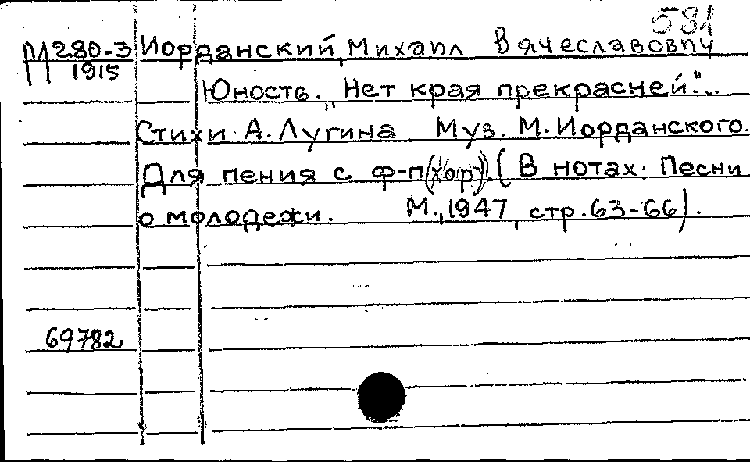 591
М280-3 Иорданский, Михаил Вячеславович
1915
Юность. "Нет края прекрасней"...
Стихи А. Лугина Муз. М. Иорданского.
Для пения с ф-п (хор) (В нотах: Песни
о молодежи. М., 1947, стр. 63-66).
69782